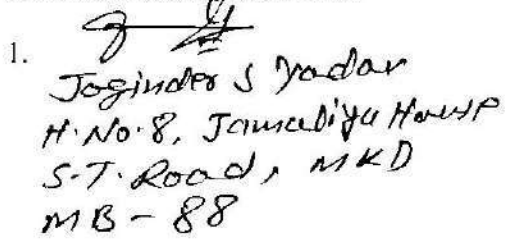 1.
Joginder S Yadav
H.No.8, Jamaliya House
S.T. Road, MKD
MB - 88